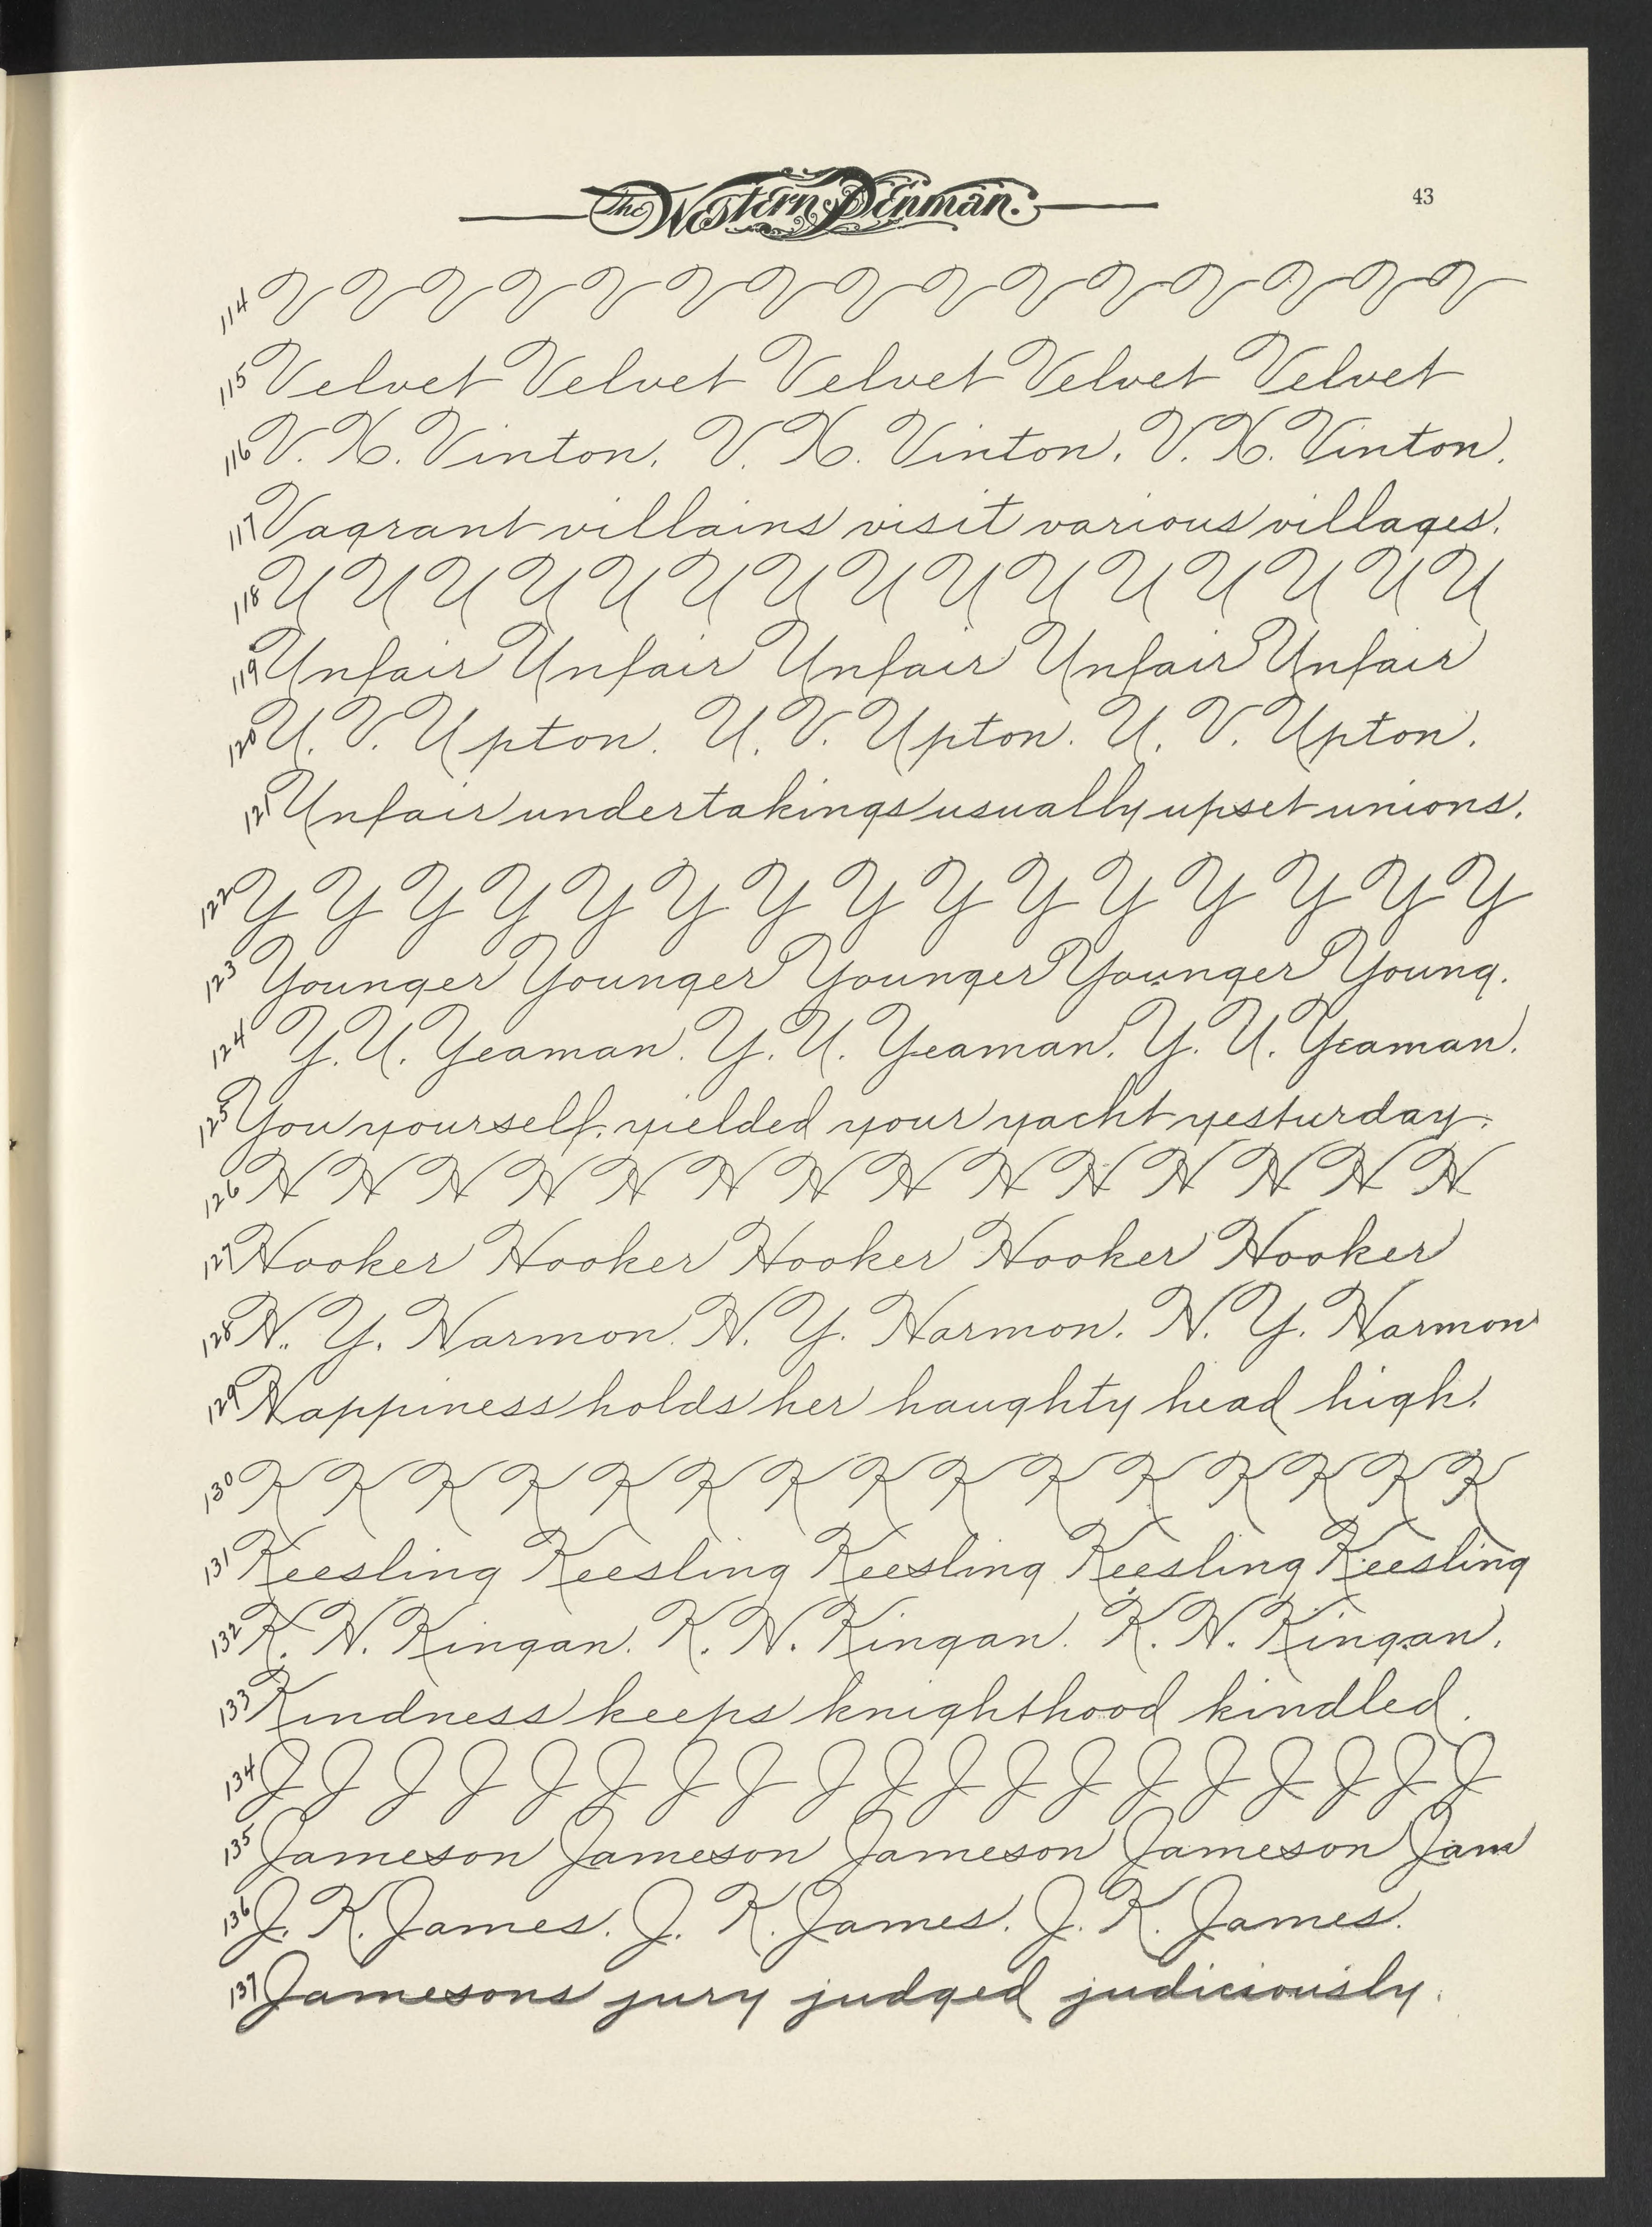 The Western Penman. 43
114 V V V V V V V V V V V V V V V
115 Velvet Velvet Velvet Velvet Velvet
116 V. X. Vinton. V. X. Vinton. V. X. Vinton.
117 Vagrant villains visit various villages.
118 U U U U U U U U U U U U U U U
119 Unfair Unfair Unfair Unfair Unfair
120 U. V. Upton. U. V. Upton. U. V. Upton.
121 Unfair undertakings usually upset unions.
122 Y Y Y Y Y Y Y Y Y Y Y Y Y Y Y
123 Younger Younger Younger Younger Young.
124 Y. U. Yeaman. Y. U. Yeaman. Y. U. Yeaman.
125 You yourself, yielded your yacht yesturday.
126 H H H H H H H H H H H H H H
127 Hooker Hooker Hooker Hooker Hooker
128 H. Y. Harmon. H. Y. Harmon. H. Y. Harmon
129 Happiness holds her haughty head high.
130 K K K K K K K K K K K K K K K
131 Keesling Keesling Keesling Keesling Keesling
132 K. H. Kingan. K. H. Kingan. K. H. Kingan.
133 Kindness keeps knighthood kindled.
134 J J J J J J J J J J J J J J J J J J J
135 Jameson Jameson Jameson Jameson Jam
136 J. K. James. J. K. James. J. K. James.
137 Jamesons jury judged judiciously.